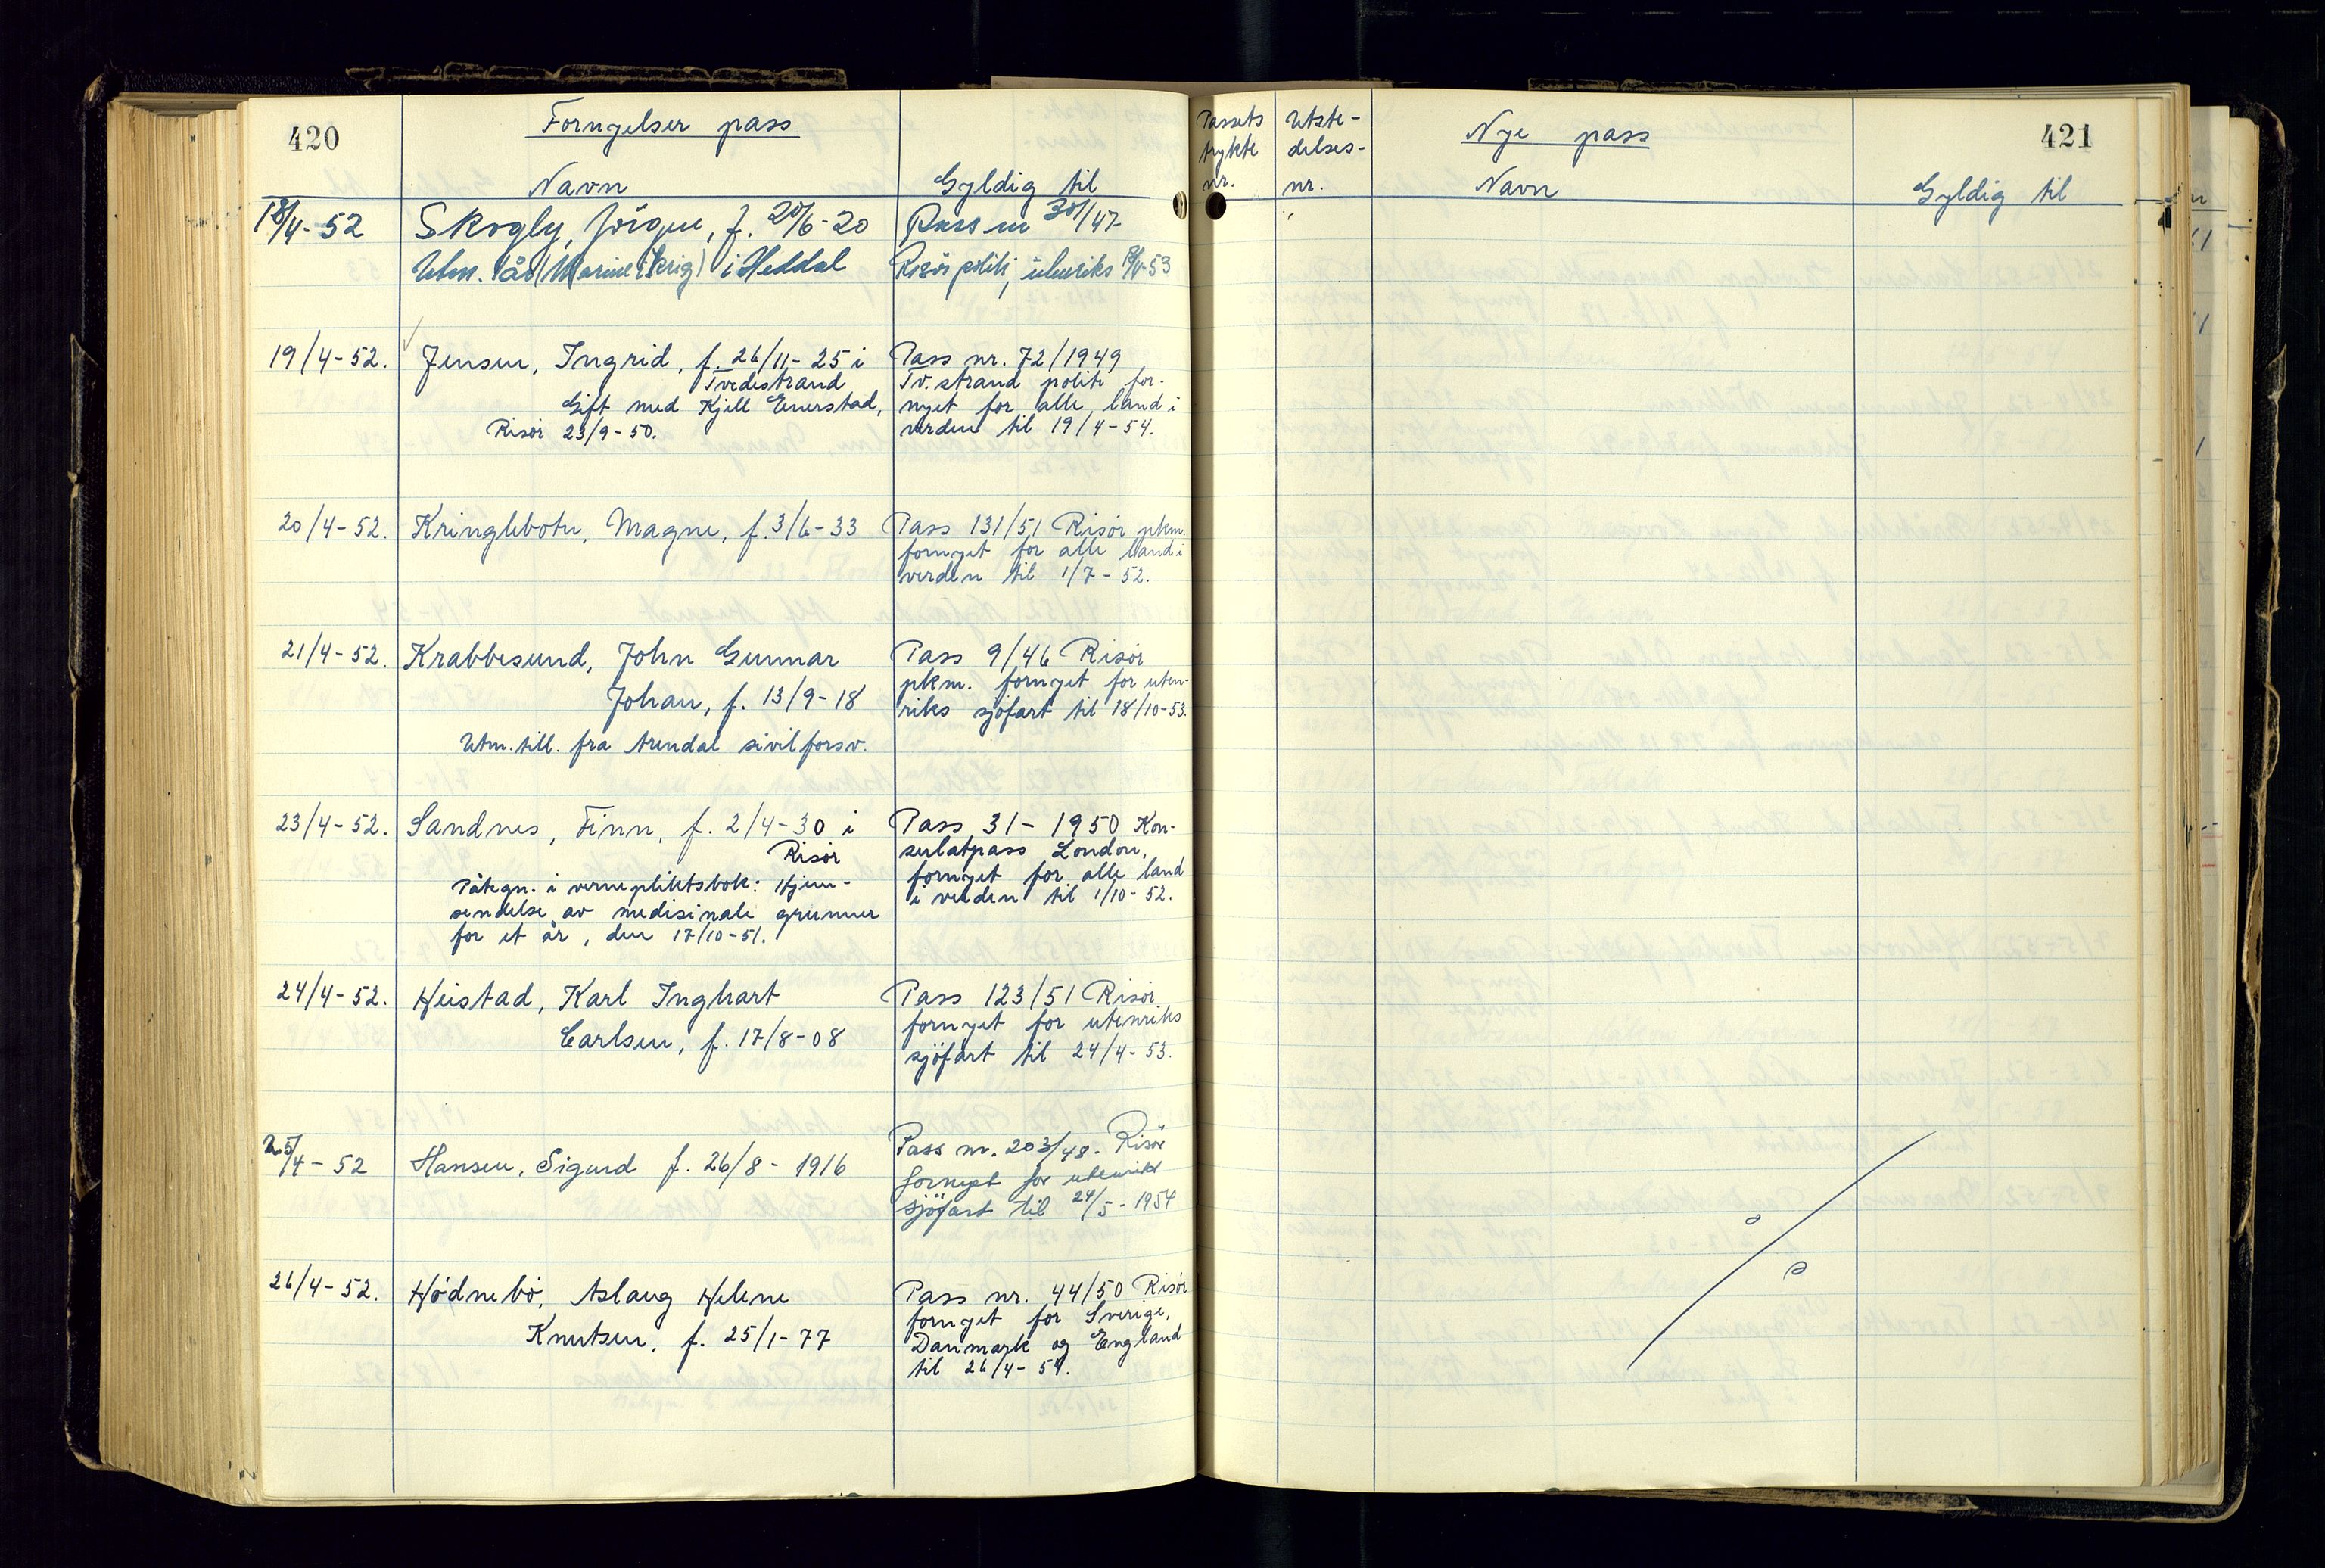 420
Fornyelser pass
Navn
Gyldig til
18/4-52 Skogly, Jörgen, f. 20/6-20 Pass nr 30/47
i Heddal Risör politi, utenriks 18/4-53
19/4-52. Jensen, Ingrid, f. 26/11-25 i Pass nr. 72/1949
Tvedestrand Tv.strand politi for-
Gift med Kjell Enerstad, nyet for alle land i
Risör 23/9-50. verden til 19/4-54.
20/4-52. Kringlebotn, Magne, f. 3/6-33 Pass 131/51 Risör pkm.
fornyet for alle land i
verden til 1/7-52.
21/4-52. Krabbesund, John Gunnar Pass 9/46 Risör
Johan, f. 13/9-18 pkm. fornyet for uten-
riks sjöfart til 18/10-53.
Utm.till. fra Arendal sivilforsv.
23/4-52. Sandnes, Finn, f. 2/4-30 i Pass 31-1950 Kon-
Risör sulatpass London,
Påtegn. i vernepliktsbok: Hjem- fornyet for alle land
sendelse av medisinale grunner i verden til 1/10-52.
for et år, den 17/10-51.
24/4-52. Heistad, Karl Inghart Pass 123/51 Risör
Carlsen, f. 17/8-08 fornyet for utenriks
sjöfart til 24/4-53.
25/4-52 Hansen, Sigurd f. 26/8-1916 Pass nr. 203/48. Risör
fornyet for utenriks
sjöfart til 24/5-1954
26/4-52. Hödnebö, Aslaug Helene Pass nr. 44/50 Risör
Knutsen, f. 25/1-77 fornyet for Sverige,
Danmark og England
til 26/4-54.
Passets
trykte
nr.
Utste-
delses-
nr.
Nye pass
Navn
421
Gyldig til